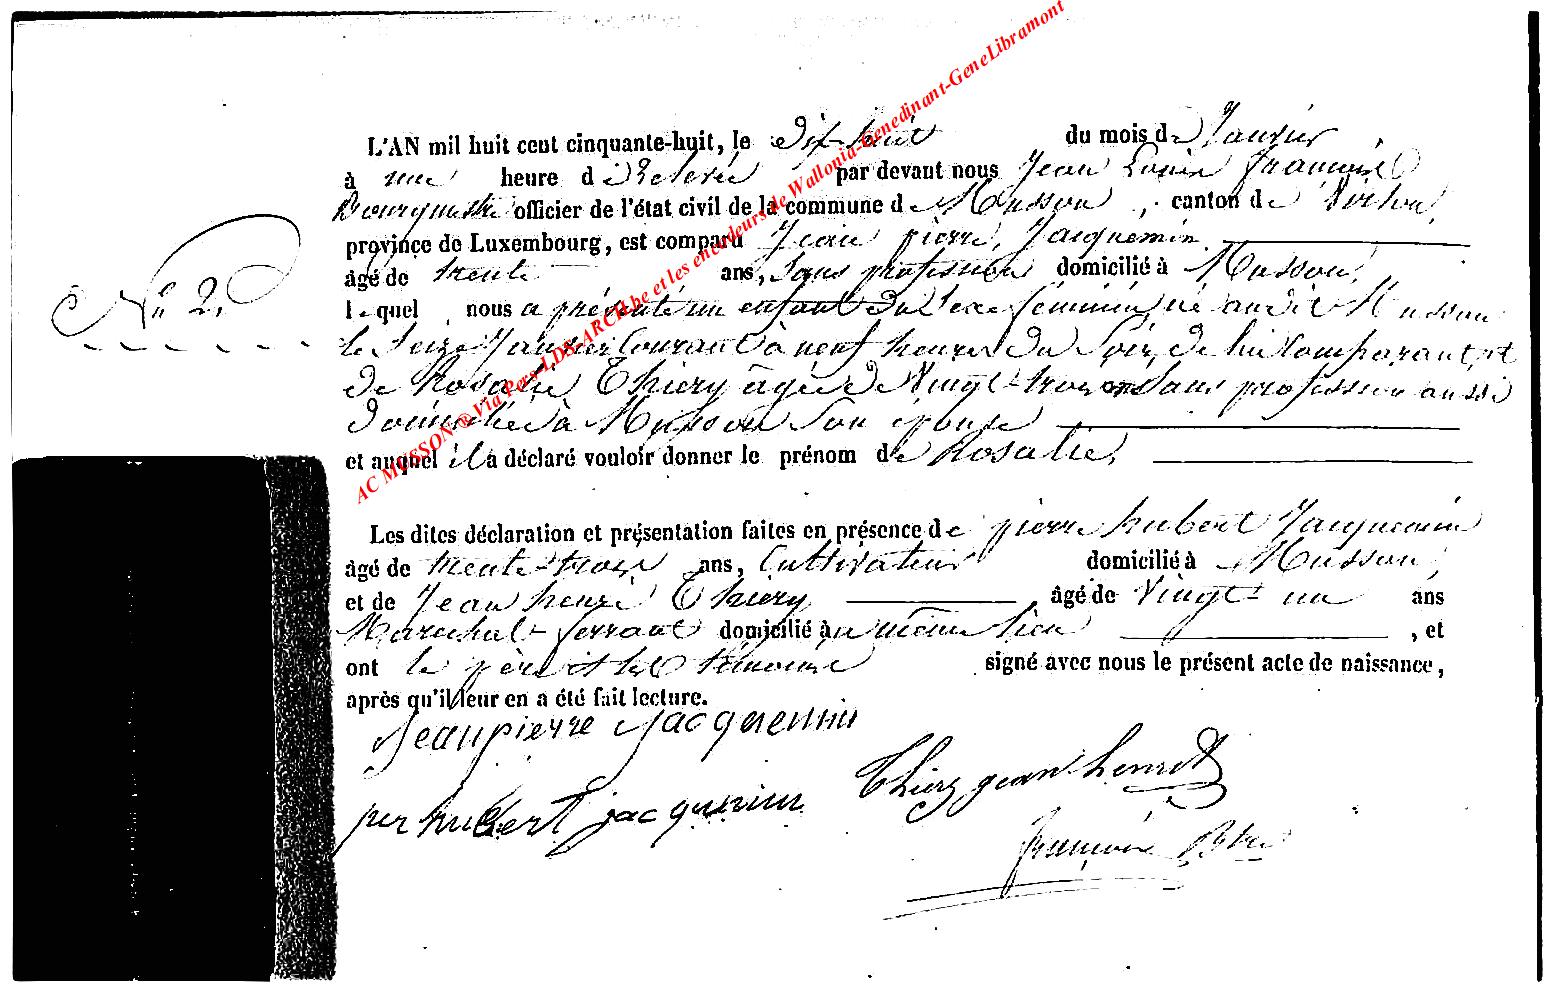 L'AN mil huit cent cinquante-huit, le dix-huit du mois de Janvier
à une heure de Relevée par devant nous Jean Louis françois
Bourgmestre officier de l'état civil de la commune de Musson, canton de Virton,
province de Luxembourg, est comparu Jean pierre Jacquemin
âgé de trente ans, sans profession domicilié à Musson,
N° 2.
lequel nous a présenté un enfant du sexe féminin, né audit Musson
le seize Janvier Courant à neuf heures du soir, de lui Comparant, et
de Rosalie Thiery âgée de Vingt-trois ans sans profession aussi
domiciliée à Musson son épouse
et auquel il a déclaré vouloir donner le prénom de Rosalie,
Les dites déclaration et présentation faites en présence de pierre hubert Jacquemin
âgé de trente-trois ans, Cultivateur domicilié à Musson,
et de Jean henri Thiery âgé de Vingt-un ans
Marechal-ferrant domicilié au même lieu, et
ont le père et les témoins signé avec nous le présent acte de naissance,
après qu'il leur en a été fait lecture.
Jeanpierre Jacquemin
Thiery jean henri
per hubert jacquemin
françois Btre
AC MUSSON ® Via Pers-LDS-ARCH.be et les encodeurs de Wallonia-Genedinant-GeneLibramont